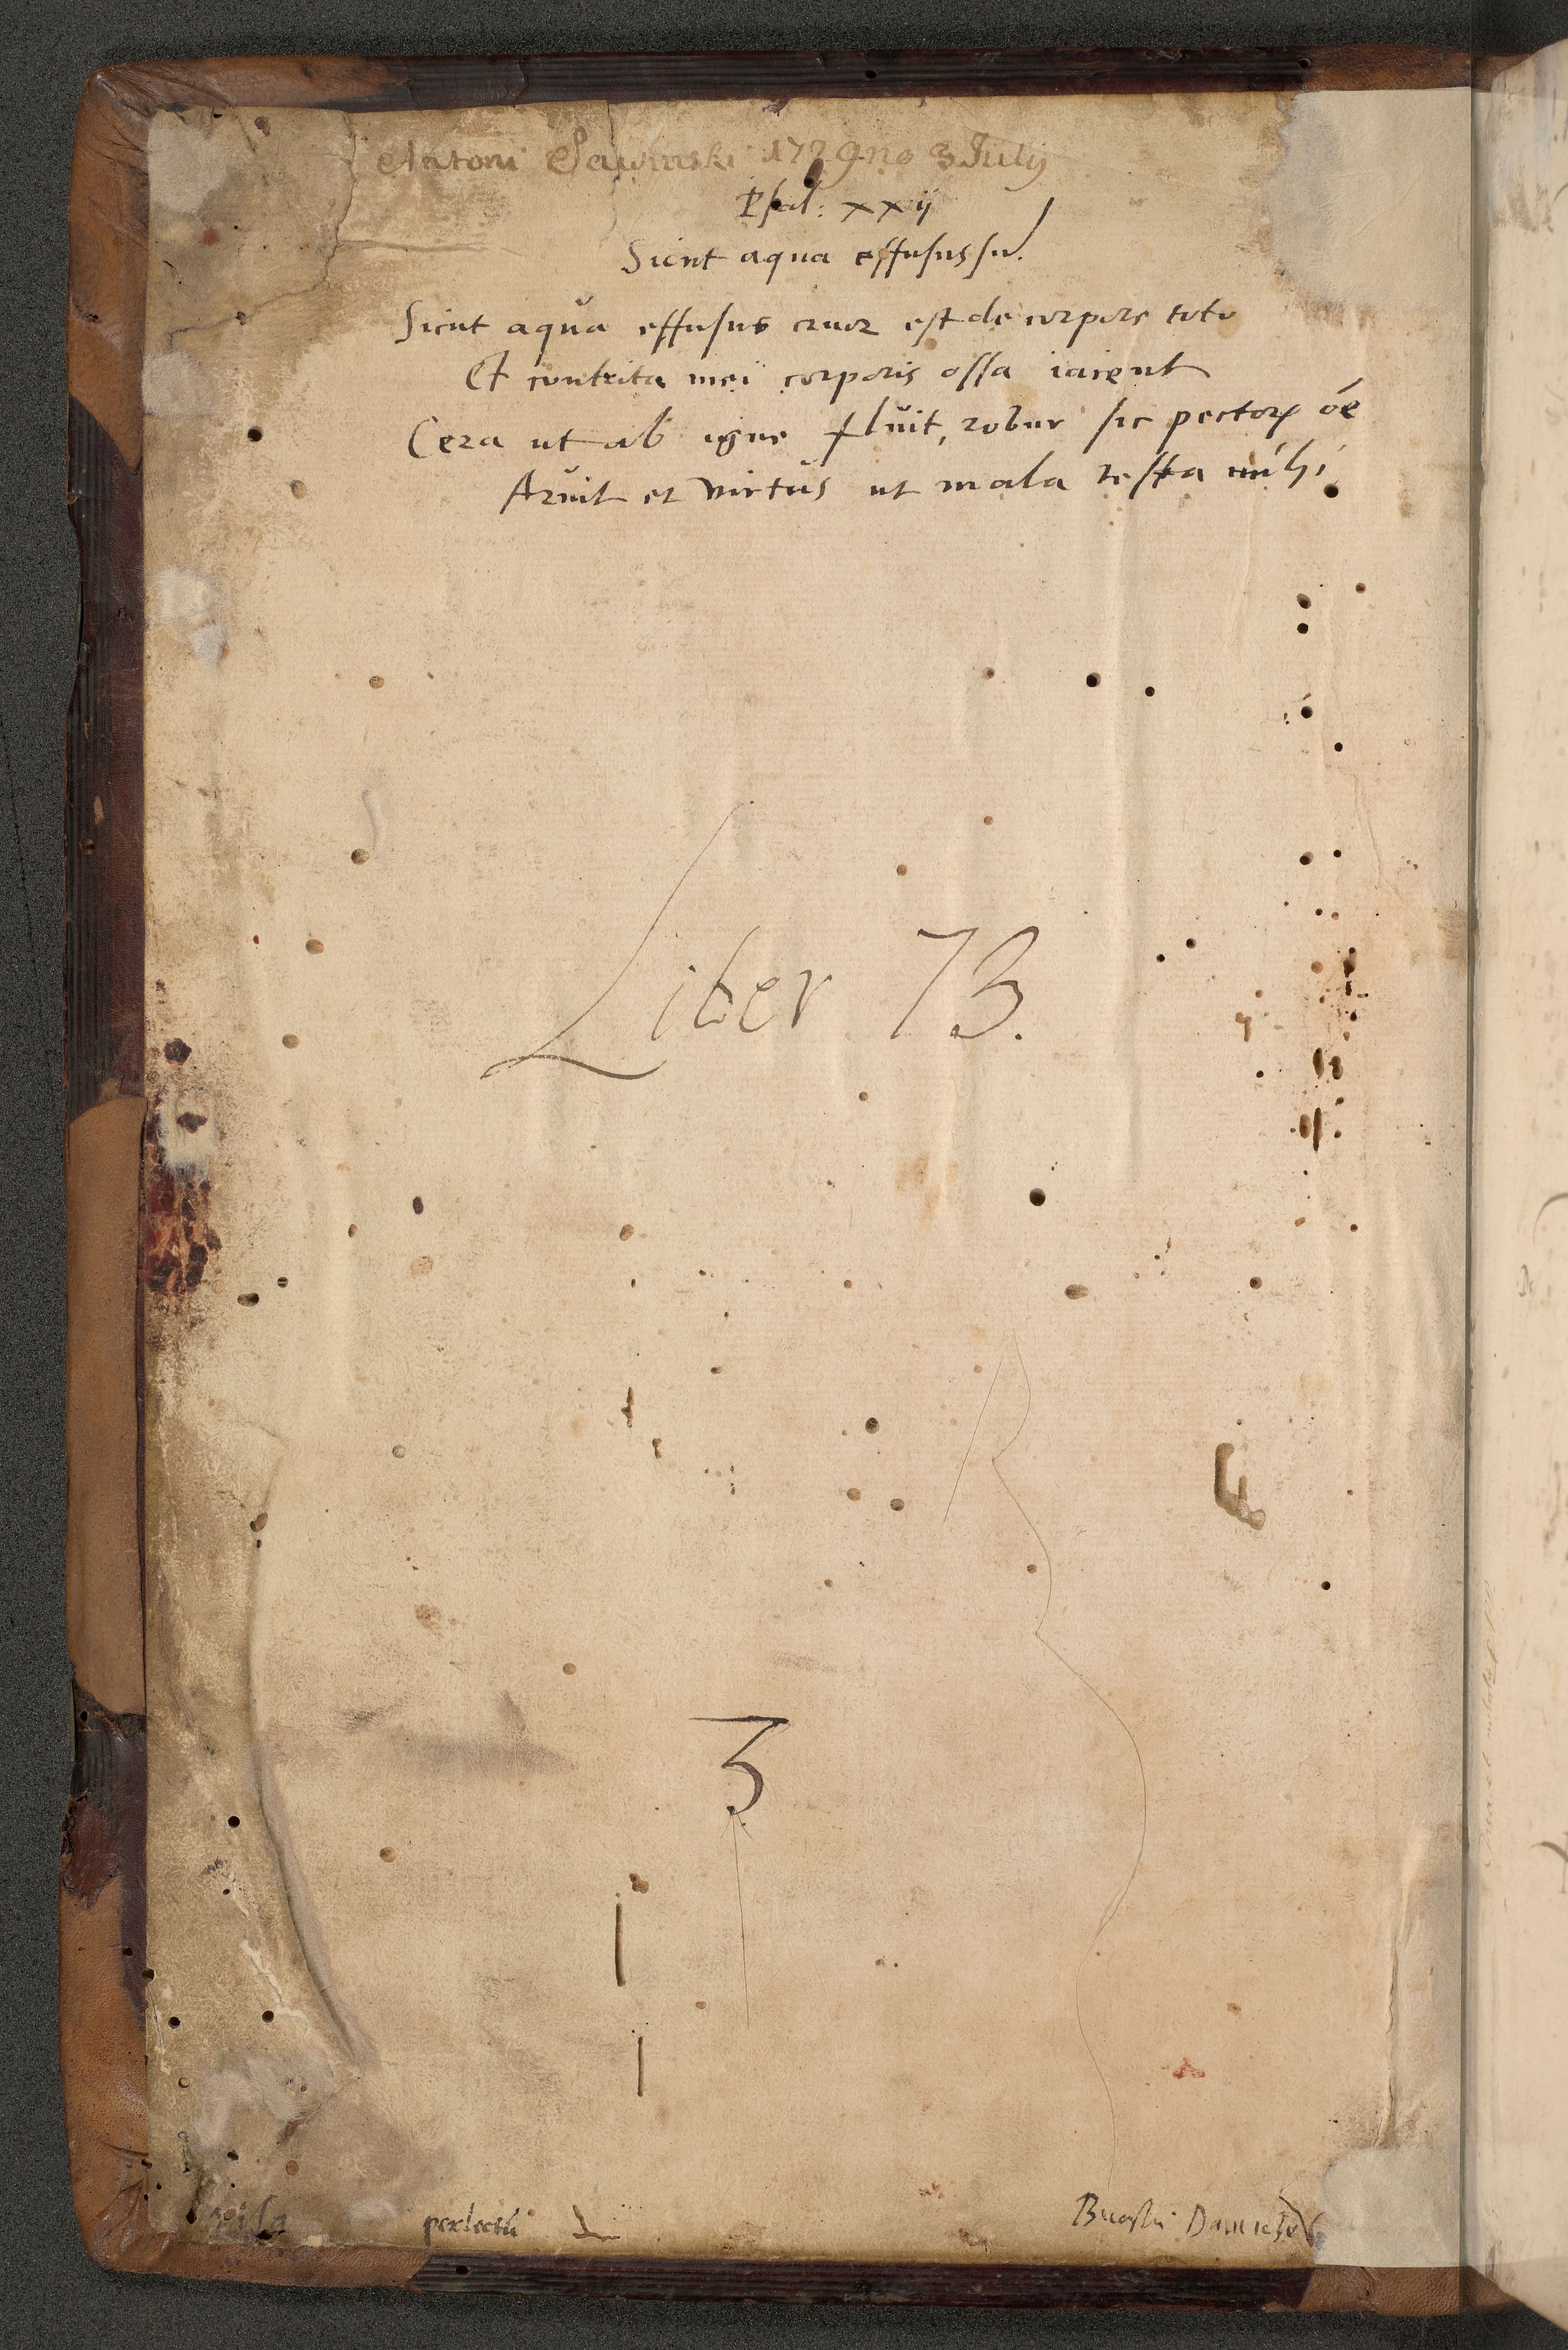 Antoni Sawinski 1729 no 3 July
Psal: xxij
Sicut aqua effusus su.
Sicut aqua effusus cruor est de corpore toto
Et contrita mei corporis ossa iacent
Cera ut ab igne fluit, robur sic pectorꝭ oē
Aruit et virtus ut mala testa mihi
Liber 73.
3
perlectū